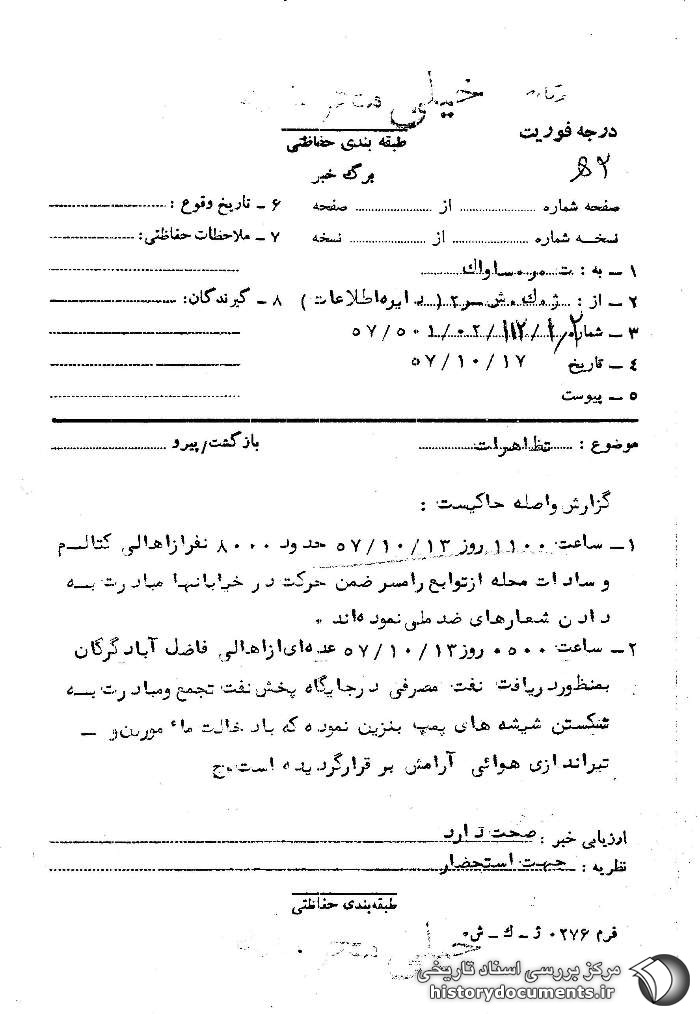 خیلی محرمانه
درجه فوریت
طبقه بندی حفاظتی
برگ خبر
صفحه شماره ........ از ........ صفحه
۶ ـ تاریخ وقوع :
نسخه شماره ........ از ........ نسخه
۷ ـ ملاحظات حفاظتی:
۱ ـ به : ت م ساواک
۲ ـ از : ژ ک ش ۲ ( دایره اطلاعات )
۸ ـ گیرندگان:
۳ ـ شماره
۴ ـ تاریخ ۵۷/۱۰/۱۷
۵ ـ پیوست
موضوع : تظاهرات
بازگشت/پیرو
گزارش واصله حاکیست :
۱ـ ساعت ۱۱۰۰ روز ۵۷/۱۰/۱۳ حدود ۸۰۰۰ نفر از اهالی کتالم
و سادات محله از توابع رامسر ضمن حرکت در خیابانها مبادرت به
دادن شعارهای ضد ملی نموده اند .
۲ـ ساعت ۰۵۰۰ روز ۵۷/۱۰/۱۳ عده ای از اهالی فاضل آباد گرگان
بمنظور دریافت نفت مصرفی در جایگاه پخش نفت تجمع و مبادرت به
شکستن شیشه های پمپ بنزین نموده که با دخالت مأمورین و ـ
تیراندازی هوائی آرامش بر قرار گردیده است.ج
ارزیابی خبر : صحت دارد
نظریه : جهت استحضار
طبقه بندی حفاظتی
فرم ۰۲۷۶ ژ ـ ک ـ ش
خیلی محرمانه
مرکز بررسی اسناد تاریخی
historydocuments.ir